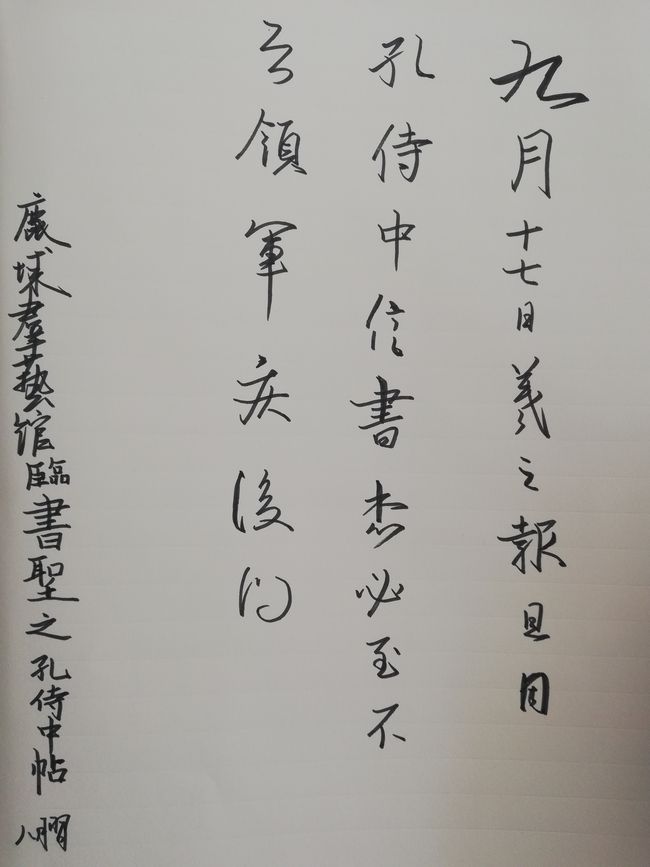 九月十七日羲之報且因
孔侍中信書想必至不
知領軍疾後問
鹿城羣藝館臨書聖之孔侍中帖